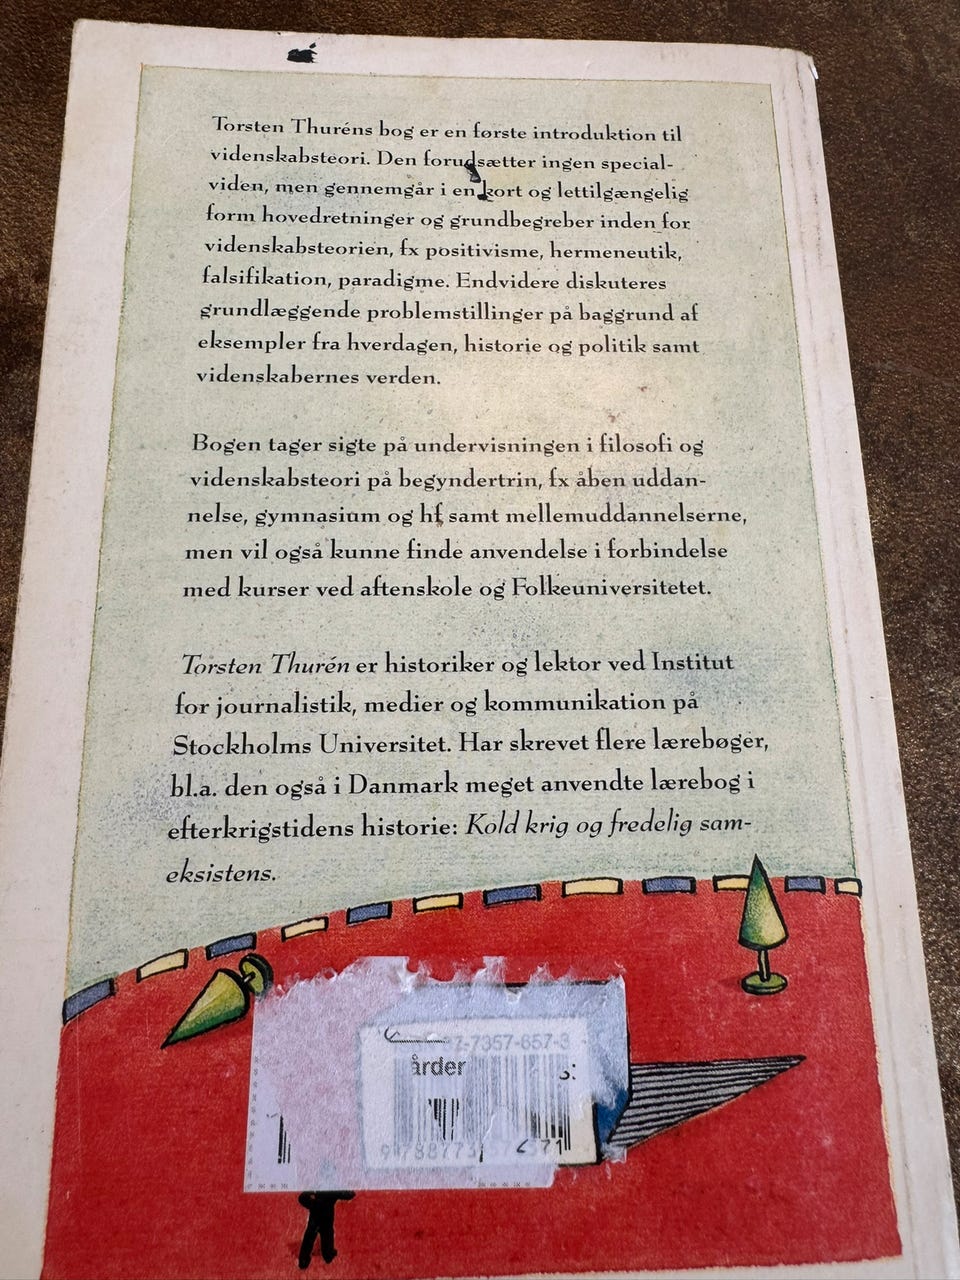 Torsten Thuréns bog er en første introduktion til
videnskabsteori. Den forudsætter ingen special-
viden, men gennemgår i en kort og lettilgængelig
form hovedretninger og grundbegreber inden for
videnskabsteorien, fx positivisme, hermeneutik,
falsifikation, paradigme. Endvidere diskuteres
grundlæggende problemstillinger på baggrund af
eksempler fra hverdagen, historie og politik samt
videnskabernes verden.
Bogen tager sigte på undervisningen i filosofi og
videnskabsteori på begyndertrin, fx åben uddan-
nelse, gymnasium og hf samt mellemuddannelserne,
men vil også kunne finde anvendelse i forbindelse
med kurser ved aftenskole og Folkeuniversitetet.
Torsten Thurén er historiker og lektor ved Institut
for journalistik, medier og kommunikation på
Stockholms Universitet. Har skrevet flere lærebøger,
bl.a. den også i Danmark meget anvendte lærebog i
efterkrigstidens historie: Kold krig og fredelig sam-
eksistens.
7-7357-657-3
årder